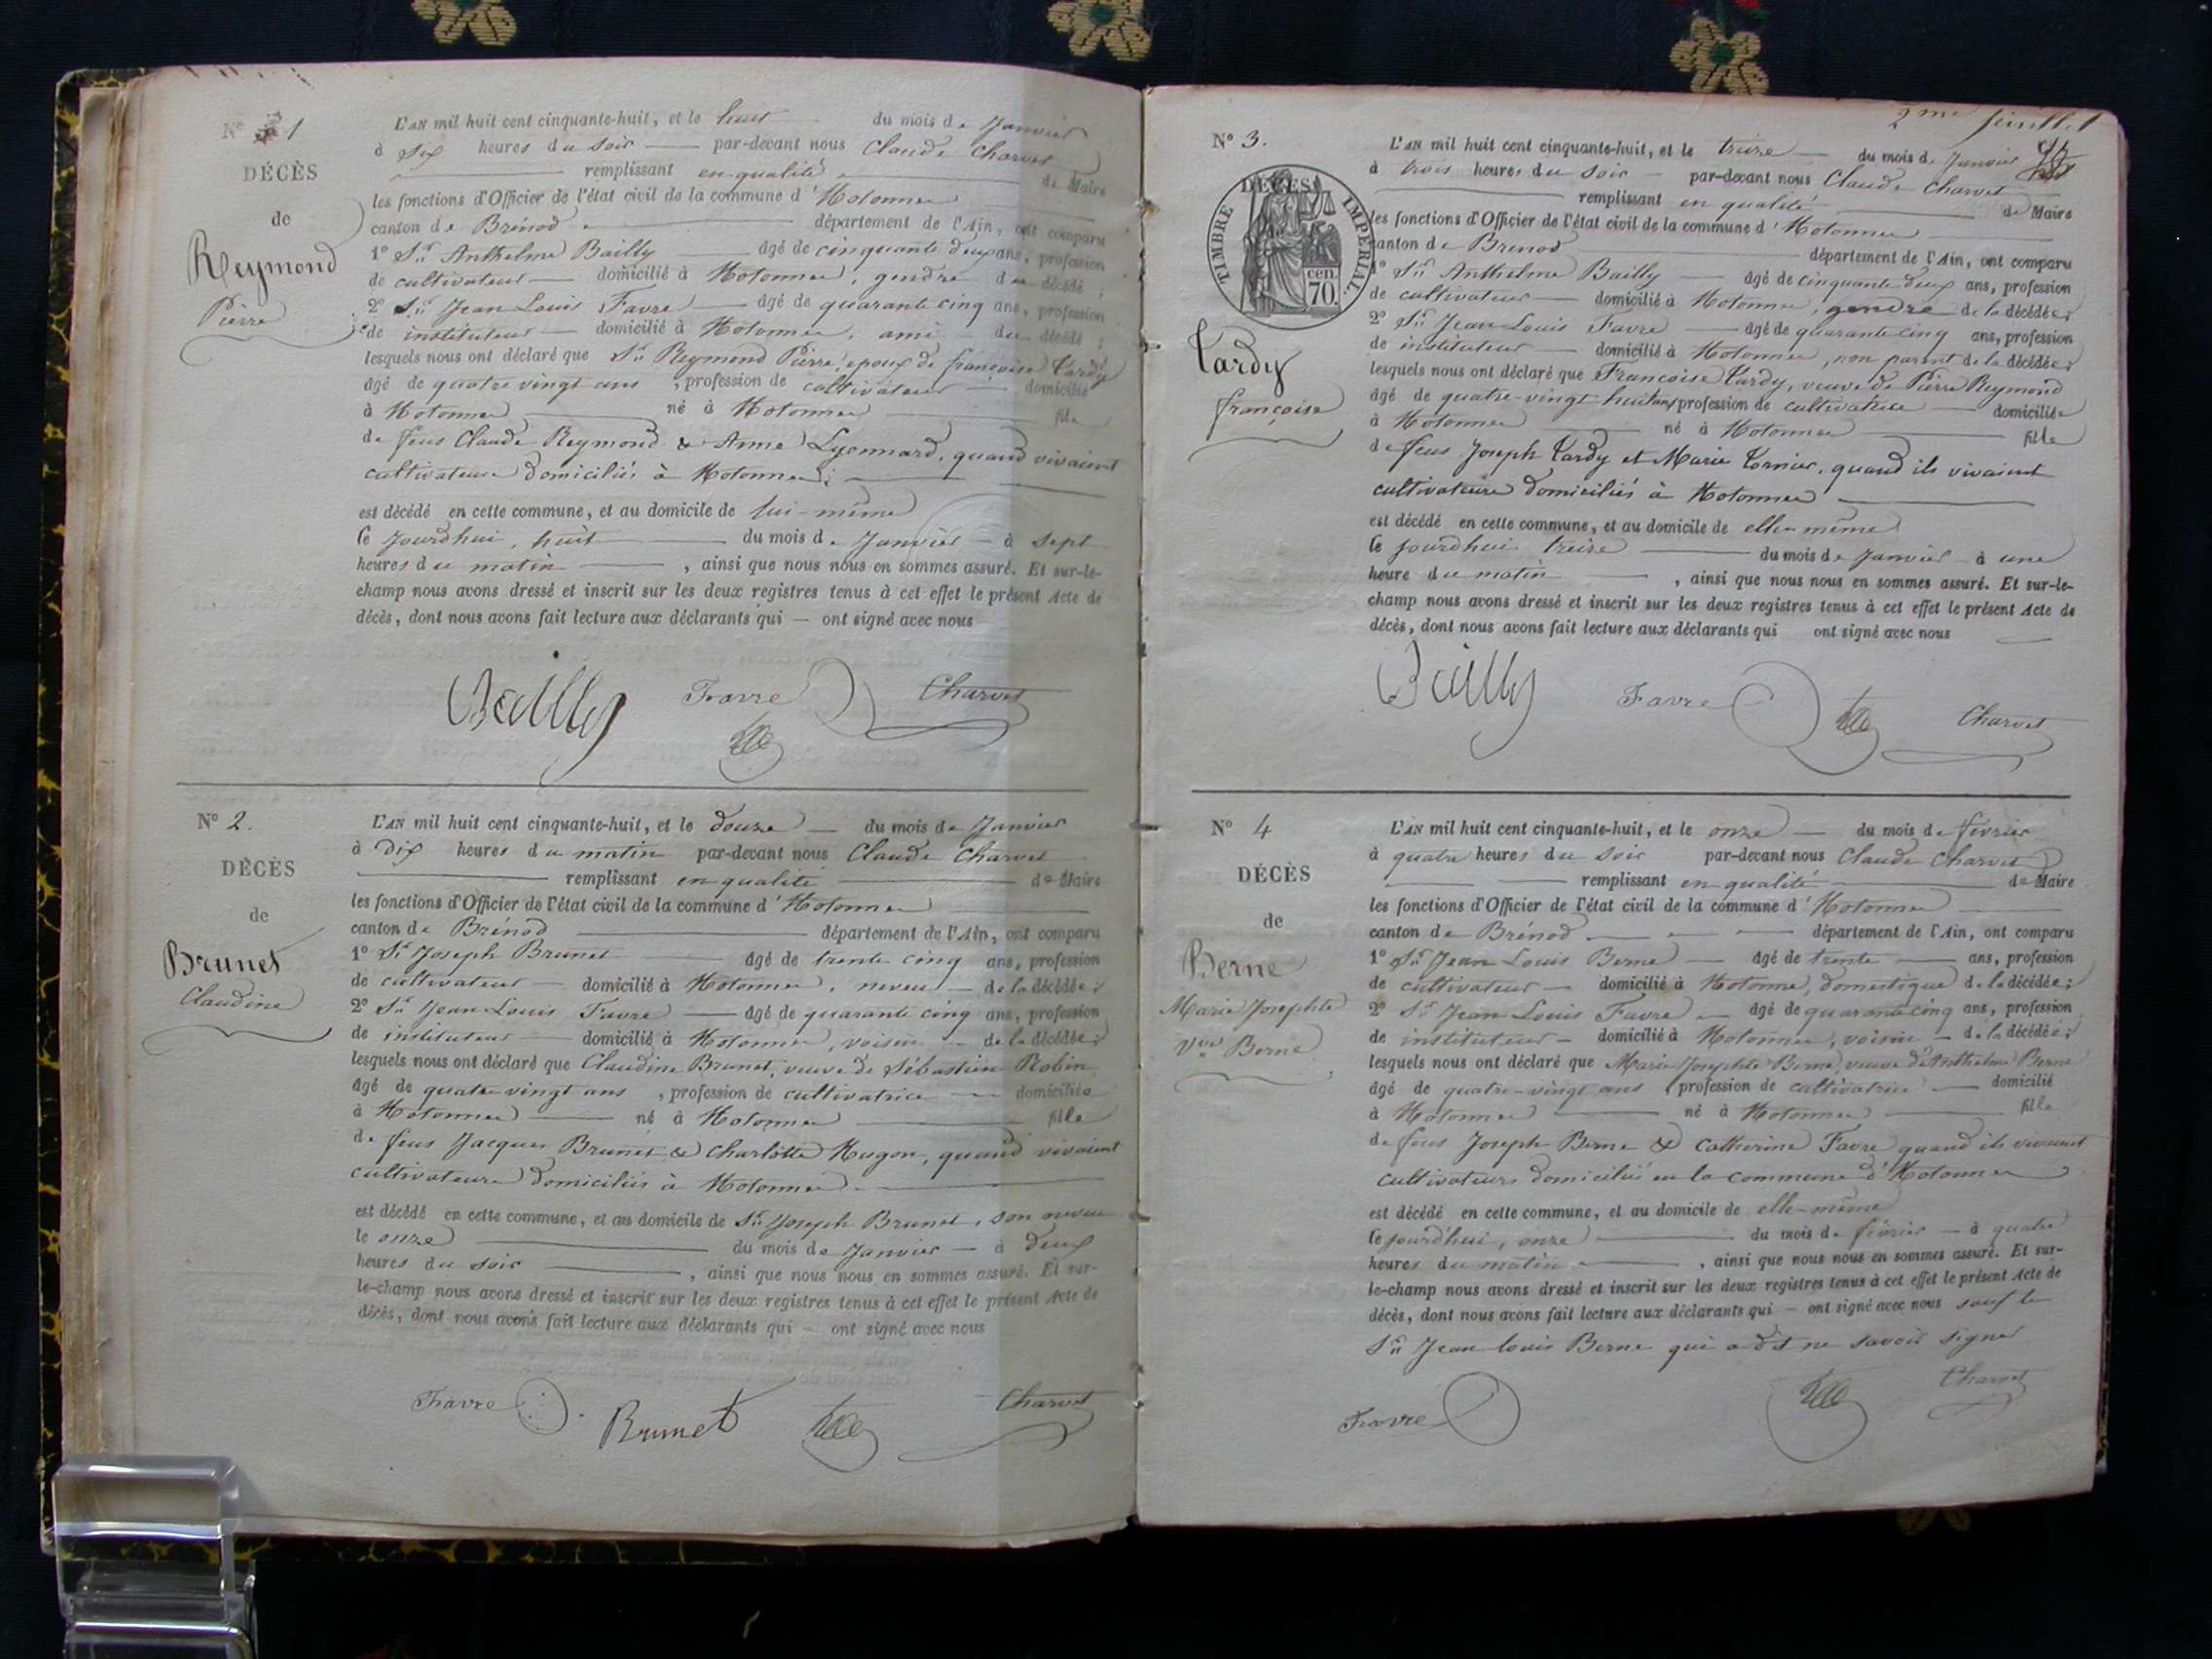 Nº 1
DÉCÈS
de
Reymond
Pierre
L'AN mil huit cent cinquante-huit, et le huit du mois de Janvier
à six heures du soir par-devant nous Claude Charvet
remplissant en qualité de Maire
les fonctions d'Officier de l'état civil de la commune d'Hotonnes
canton de Brénod département de l'Ain, ont comparu
1º Sr Anthelme Bailly âgé de cinquante deux ans, profession
de cultivateur domicilié à Hotonnes, gendre du décédé;
2º Sr Jean Louis Favre âgé de quarante cinq ans, profession
de instituteur domicilié à Hotonnes, ami du décédé;
lesquels nous ont déclaré que Sr Reymond Pierre, epoux de françoise Tardy
âgé de quatre vingt ans, profession de cultivateur domicilié
à Hotonnes né à Hotonnes fils
de feus Claude Reymond & Anne Lyonnard, quand vivaient
cultivateurs domiciliés à Hotonnes;
est décédé en cette commune, et au domicile de lui-même
le jourdhui, huit du mois de Janvier à sept
heures du matin, ainsi que nous nous en sommes assuré. Et sur-le-
champ nous avons dressé et inscrit sur les deux registres tenus à cet effet le présent Acte de
décès, dont nous avons fait lecture aux déclarants qui — ont signé avec nous
Bailly Favre Charvet
Nº 2.
DÉCÈS
de
Brunet
Claudine
L'AN mil huit cent cinquante-huit, et le douze du mois de Janvier
à dix heures du matin par-devant nous Claude Charvet
remplissant en qualité de Maire
les fonctions d'Officier de l'état civil de la commune d'Hotonnes
canton de Brénod département de l'Ain, ont comparu
1º Sr Joseph Brunet âgé de trente cinq ans, profession
de cultivateur domicilié à Hotonnes, neveu de la décédée;
2º Sr Jean Louis Favre âgé de quarante cinq ans, profession
de instituteur domicilié à Hotonnes, voisin de la décédée;
lesquels nous ont déclaré que Claudine Brunet, veuve de Sébastien Robin
âgé de quatre vingt ans, profession de cultivatrice domiciliée
à Hotonnes né à Hotonnes fille
de feus Jacques Brunet & Charlotte Hugon, quand vivaient
cultivateurs domiciliés à Hotonnes.
est décédé en cette commune, et au domicile de Sr Joseph Brunet, son neveu
le onze du mois de Janvier à deux
heures du soir, ainsi que nous nous en sommes assuré. Et sur-
le-champ nous avons dressé et inscrit sur les deux registres tenus à cet effet le présent Acte de
décès, dont nous avons fait lecture aux déclarants qui — ont signé avec nous
Favre Brunet Charvet
2me feuillet
Nº 3.
DÉCÈS
de
TIMBRE IMPERIAL
70 cen.
Tardy
françoise
L'AN mil huit cent cinquante-huit, et le treize du mois de Janvier
à trois heures du soir par-devant nous Claude Charvet
remplissant en qualité de Maire
les fonctions d'Officier de l'état civil de la commune d'Hotonnes
canton de Brenod département de l'Ain, ont comparu
1º Sr Anthelme Bailly âgé de cinquante deux ans, profession
de cultivateur domicilié à Hotonnes, gendre de la décédée;
2º Sr Jean Louis Favre âgé de quarante cinq ans, profession
de instituteur domicilié à Hotonnes, non parent de la décédée;
lesquels nous ont déclaré que Françoise Tardy, veuve de Pierre Reymond
âgé de quatre-vingt huit ans, profession de cultivatrice domiciliée
à Hotonnes né à Hotonnes fille
de feus Joseph Tardy et Marie Tornier, quand ils vivaient
cultivateurs domiciliés à Hotonnes
est décédé en cette commune, et au domicile de elle-même
le jourdhui treize du mois de Janvier à une
heure du matin, ainsi que nous nous en sommes assuré. Et sur-le-
champ nous avons dressé et inscrit sur les deux registres tenus à cet effet le présent Acte de
décès, dont nous avons fait lecture aux déclarants qui ont signé avec nous
Bailly Favre Charvet
Nº 4
DÉCÈS
de
Berne
Marie Josephte
Vve Berne
L'AN mil huit cent cinquante-huit, et le onze du mois de février
à quatre heures du soir par-devant nous Claude Charvet
remplissant en qualité de Maire
les fonctions d'Officier de l'état civil de la commune d'Hotonnes
canton de Brénod département de l'Ain, ont comparu
1º Sr Jean Louis Berne âgé de trente ans, profession
de cultivateur domicilié à Hotonnes, domestique de la décédée;
2º Sr Jean Louis Favre âgé de quarante cinq ans, profession
de instituteur domicilié à Hotonnes, voisin de la décédée;
lesquels nous ont déclaré que Marie Josephte Berne, veuve d'Anthelme Berne
âgé de quatre-vingt ans, profession de cultivatrice domicilié
à Hotonnes né à Hotonnes fille
de feus Joseph Berne & Catherine Favre quand ils vivaient
cultivateurs domiciliés en la commune d'Hotonnes
est décédé en cette commune, et au domicile de elle-même
le jourd'hui, onze du mois de février à quatre
heures du matin, ainsi que nous nous en sommes assuré. Et sur-
le-champ nous avons dressé et inscrit sur les deux registres tenus à cet effet le présent Acte de
décès, dont nous avons fait lecture aux déclarants qui — ont signé avec nous sauf le
Sr Jean Louis Berne qui a dit ne savoir signer
Favre Charvet